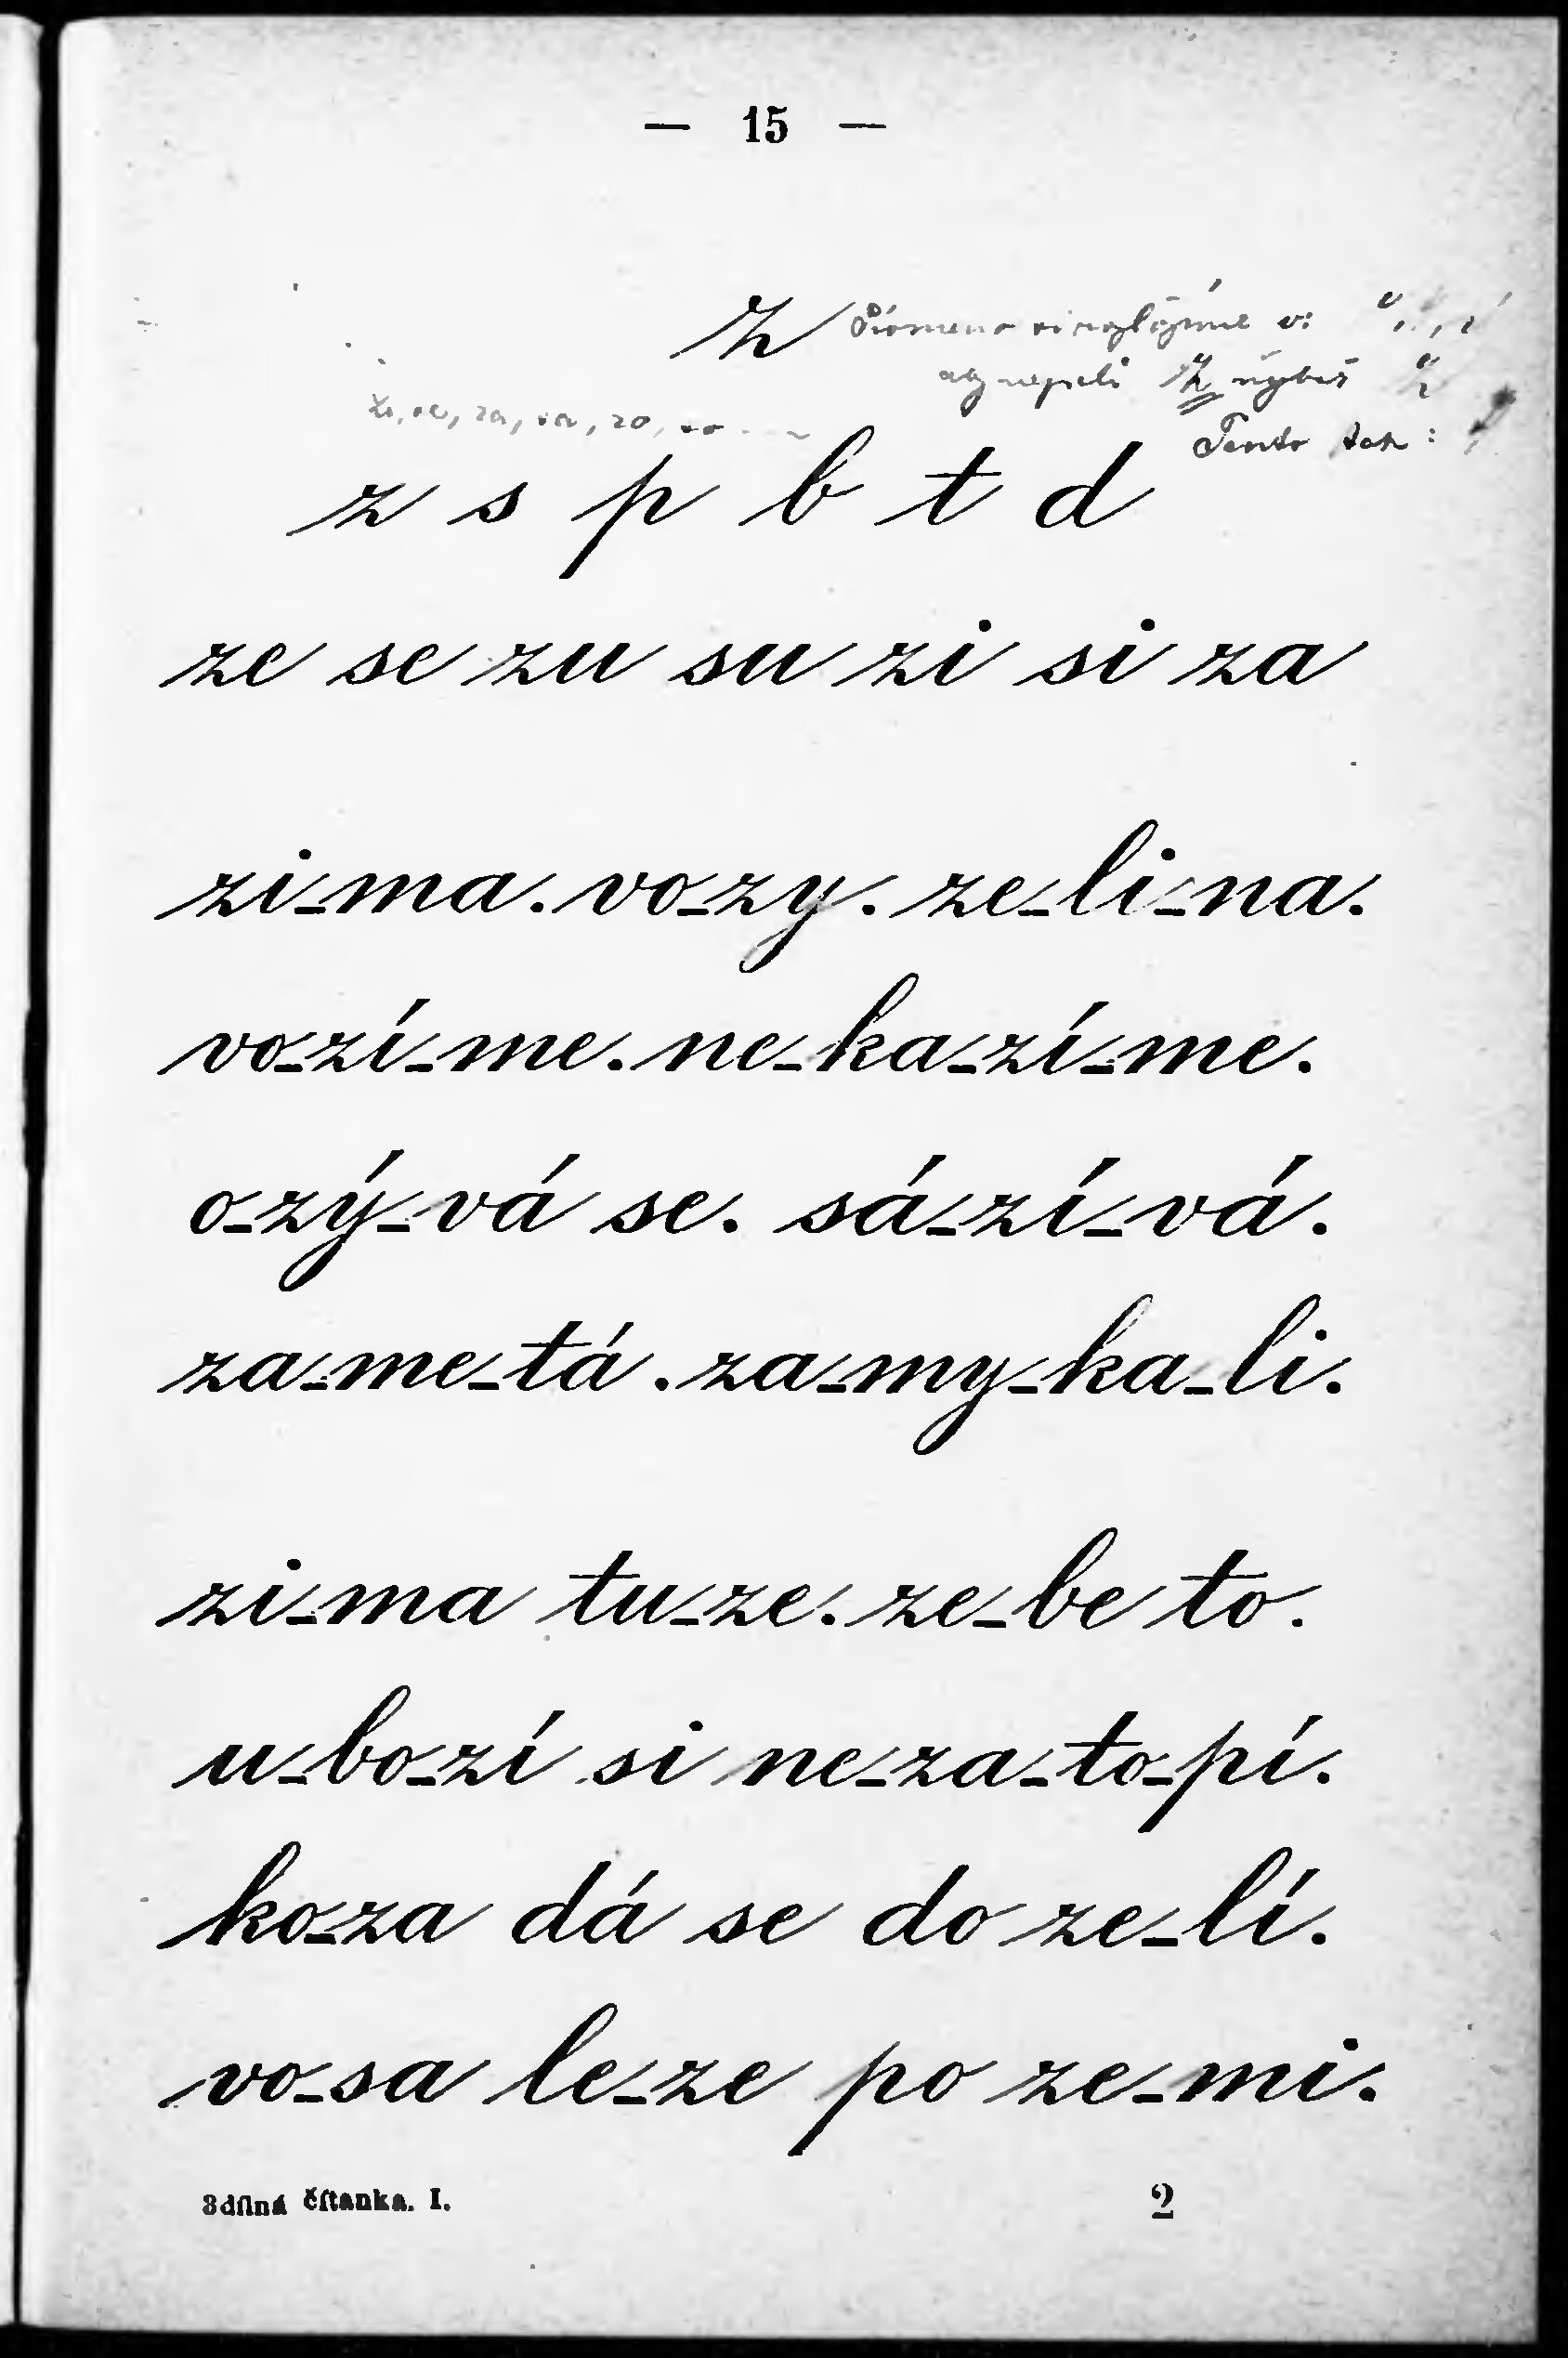 — 15 —
z Písmeno v:
z
Tento tak:
z s p b t d
ze se zu su zi si za
zi-ma. vo-zy. ze-li-na.
vo-zí-me. ne-ka-zí-me.
o-zý-vá se. sá-zí-vá.
za-me-tá. za-my-ka-li.
zi-ma tu-ze. ze-be to.
u-bo-zí si ne-za-to-pí.
ko-za dá se do ze-lí.
vo-sa le-ze po ze-mi.
3dílná čítanka. I. 2